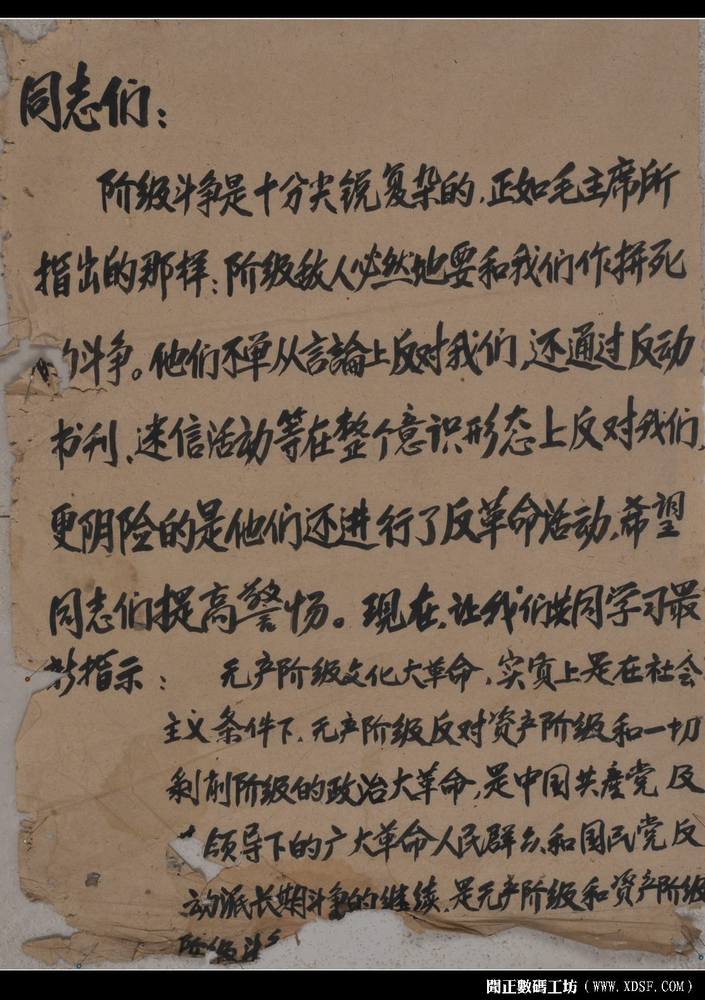 同志们：
阶级斗争是十分尖锐复杂的，正如毛主席所
指出的那样：阶级敌人必然地要和我们作拼死
的斗争。他们不单从言論上反对我们，还通过反动
书刊、迷信活动等在整个意识形态上反对我们，
更阴险的是他们还进行了反革命活动，希望
同志们提高警惕。现在，让我们共同学习最
新指示：无产阶级文化大革命，实质上是在社会
主义条件下，无产阶级反对资产阶级和一切
剥削阶级的政治大革命，是中国共產党及
领导下的广大革命人民群众和国民党反
动派长期斗争的继续，是无产阶级和资产阶级
阶级斗
聞正數碼工坊（WWW.XDSF.COM）